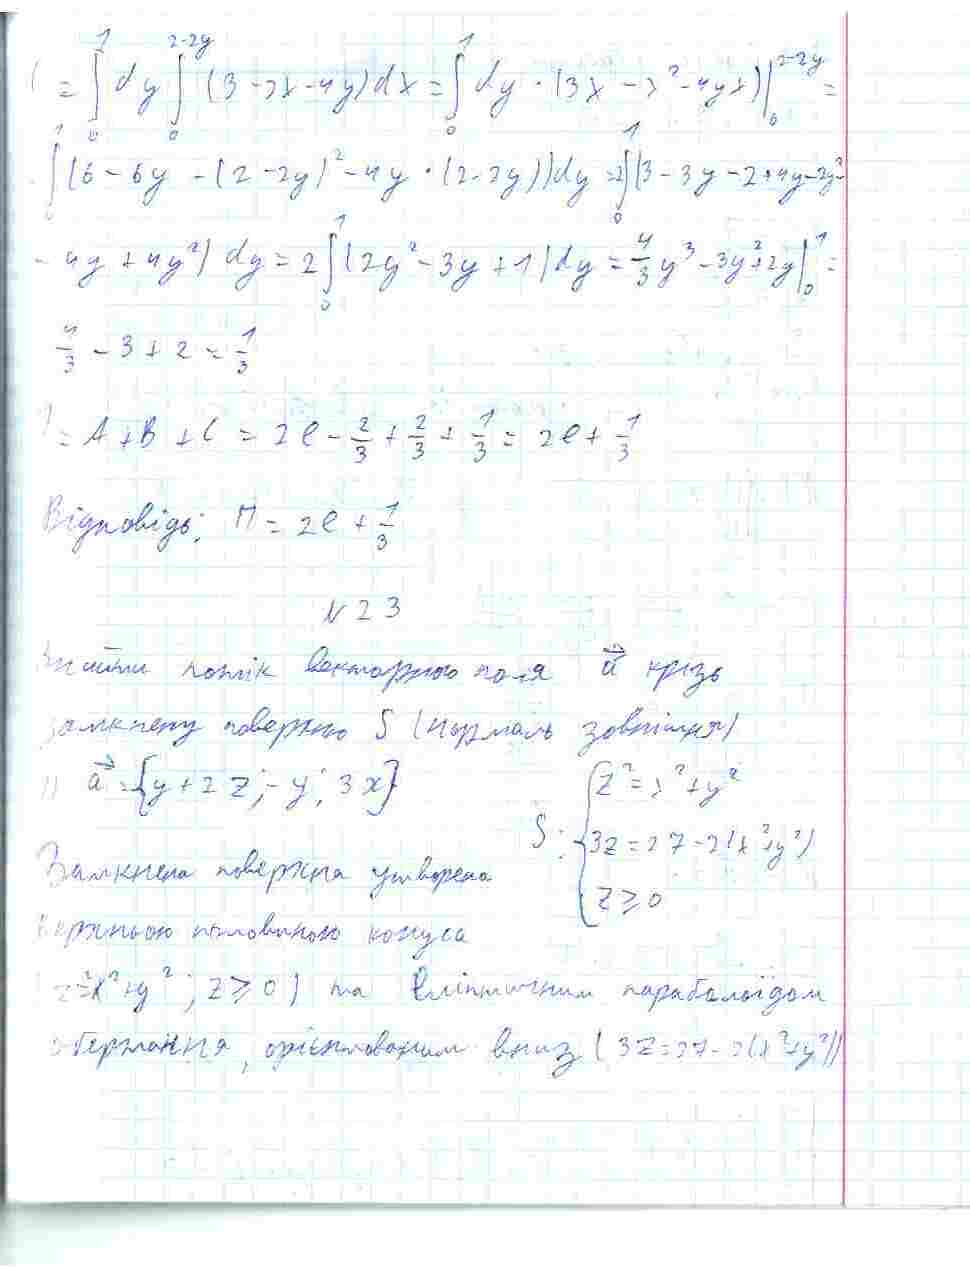 = ∫₀¹ dy ∫₀^(2-2y) (3 - 2x - 4y) dx = ∫₀¹ dy · (3x - x² - 4yx) |₀^(2-2y) =
∫₀¹ (6 - 6y - (2 - 2y)² - 4y · (2 - 2y)) dy = 2∫₀¹ (3 - 3y - 2 + 4y - 2y² -
- 4y + 4y²) dy = 2 ∫₀¹ (2y² - 3y + 1) dy = 4/3 y³ - 3y² + 2y |₀¹ =
4/3 - 3 + 2 = 1/3
= A + B + C = 2e - 2/3 + 2/3 + 1/3 = 2e + 1/3
Відповідь: П = 2e + 1/3
N 23
Знайти потік векторного поля a⃗ крізь
замкнену поверхню S (нормаль зовнішня)
a⃗ = {y + 2z; -y; 3x}
S: { z² = x² + y²
3z = 27 - 2(x² + y²)
z ≥ 0
Замкнена поверхня утворена
верхньою половиною конуса
z² = x² + y²; z ≥ 0) та еліптичним параболоїдом
обертання, орієнтованим вниз (3z = 27 - 2(x² + y²))